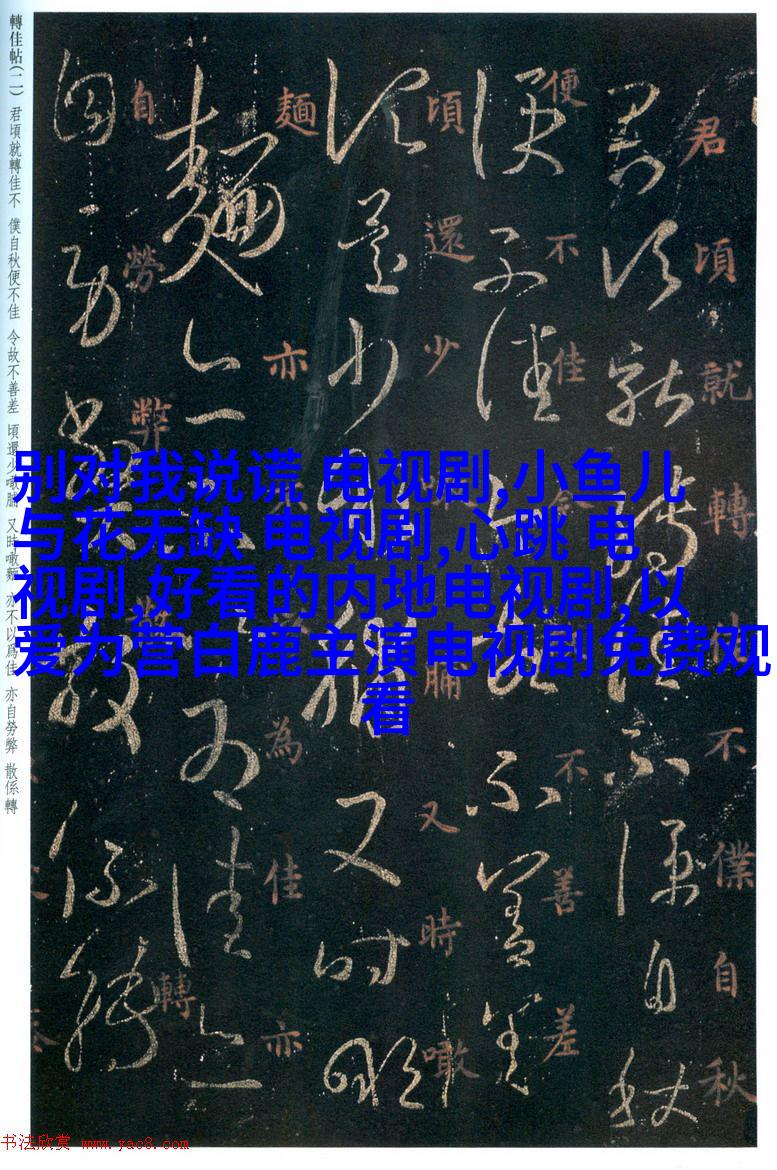 轉佳帖(二) 君頃就轉佳不 僕自秋便不佳 令故不善差 頃還少噉脯 又時噉麵 亦不以爲佳 亦自勞弊 散係轉
君頃就轉佳不僕自秋
便不佳不善差
頃還少脯又時噉
麵亦為佳亦
自勞弊散轉
别对我说谎 电视剧,小鱼儿
与花无缺 电视剧,心跳 电
视剧,好看的内地电视剧,以
爱为营白鹿主演电视剧免费观
看
书法欣赏 www.yac8.com